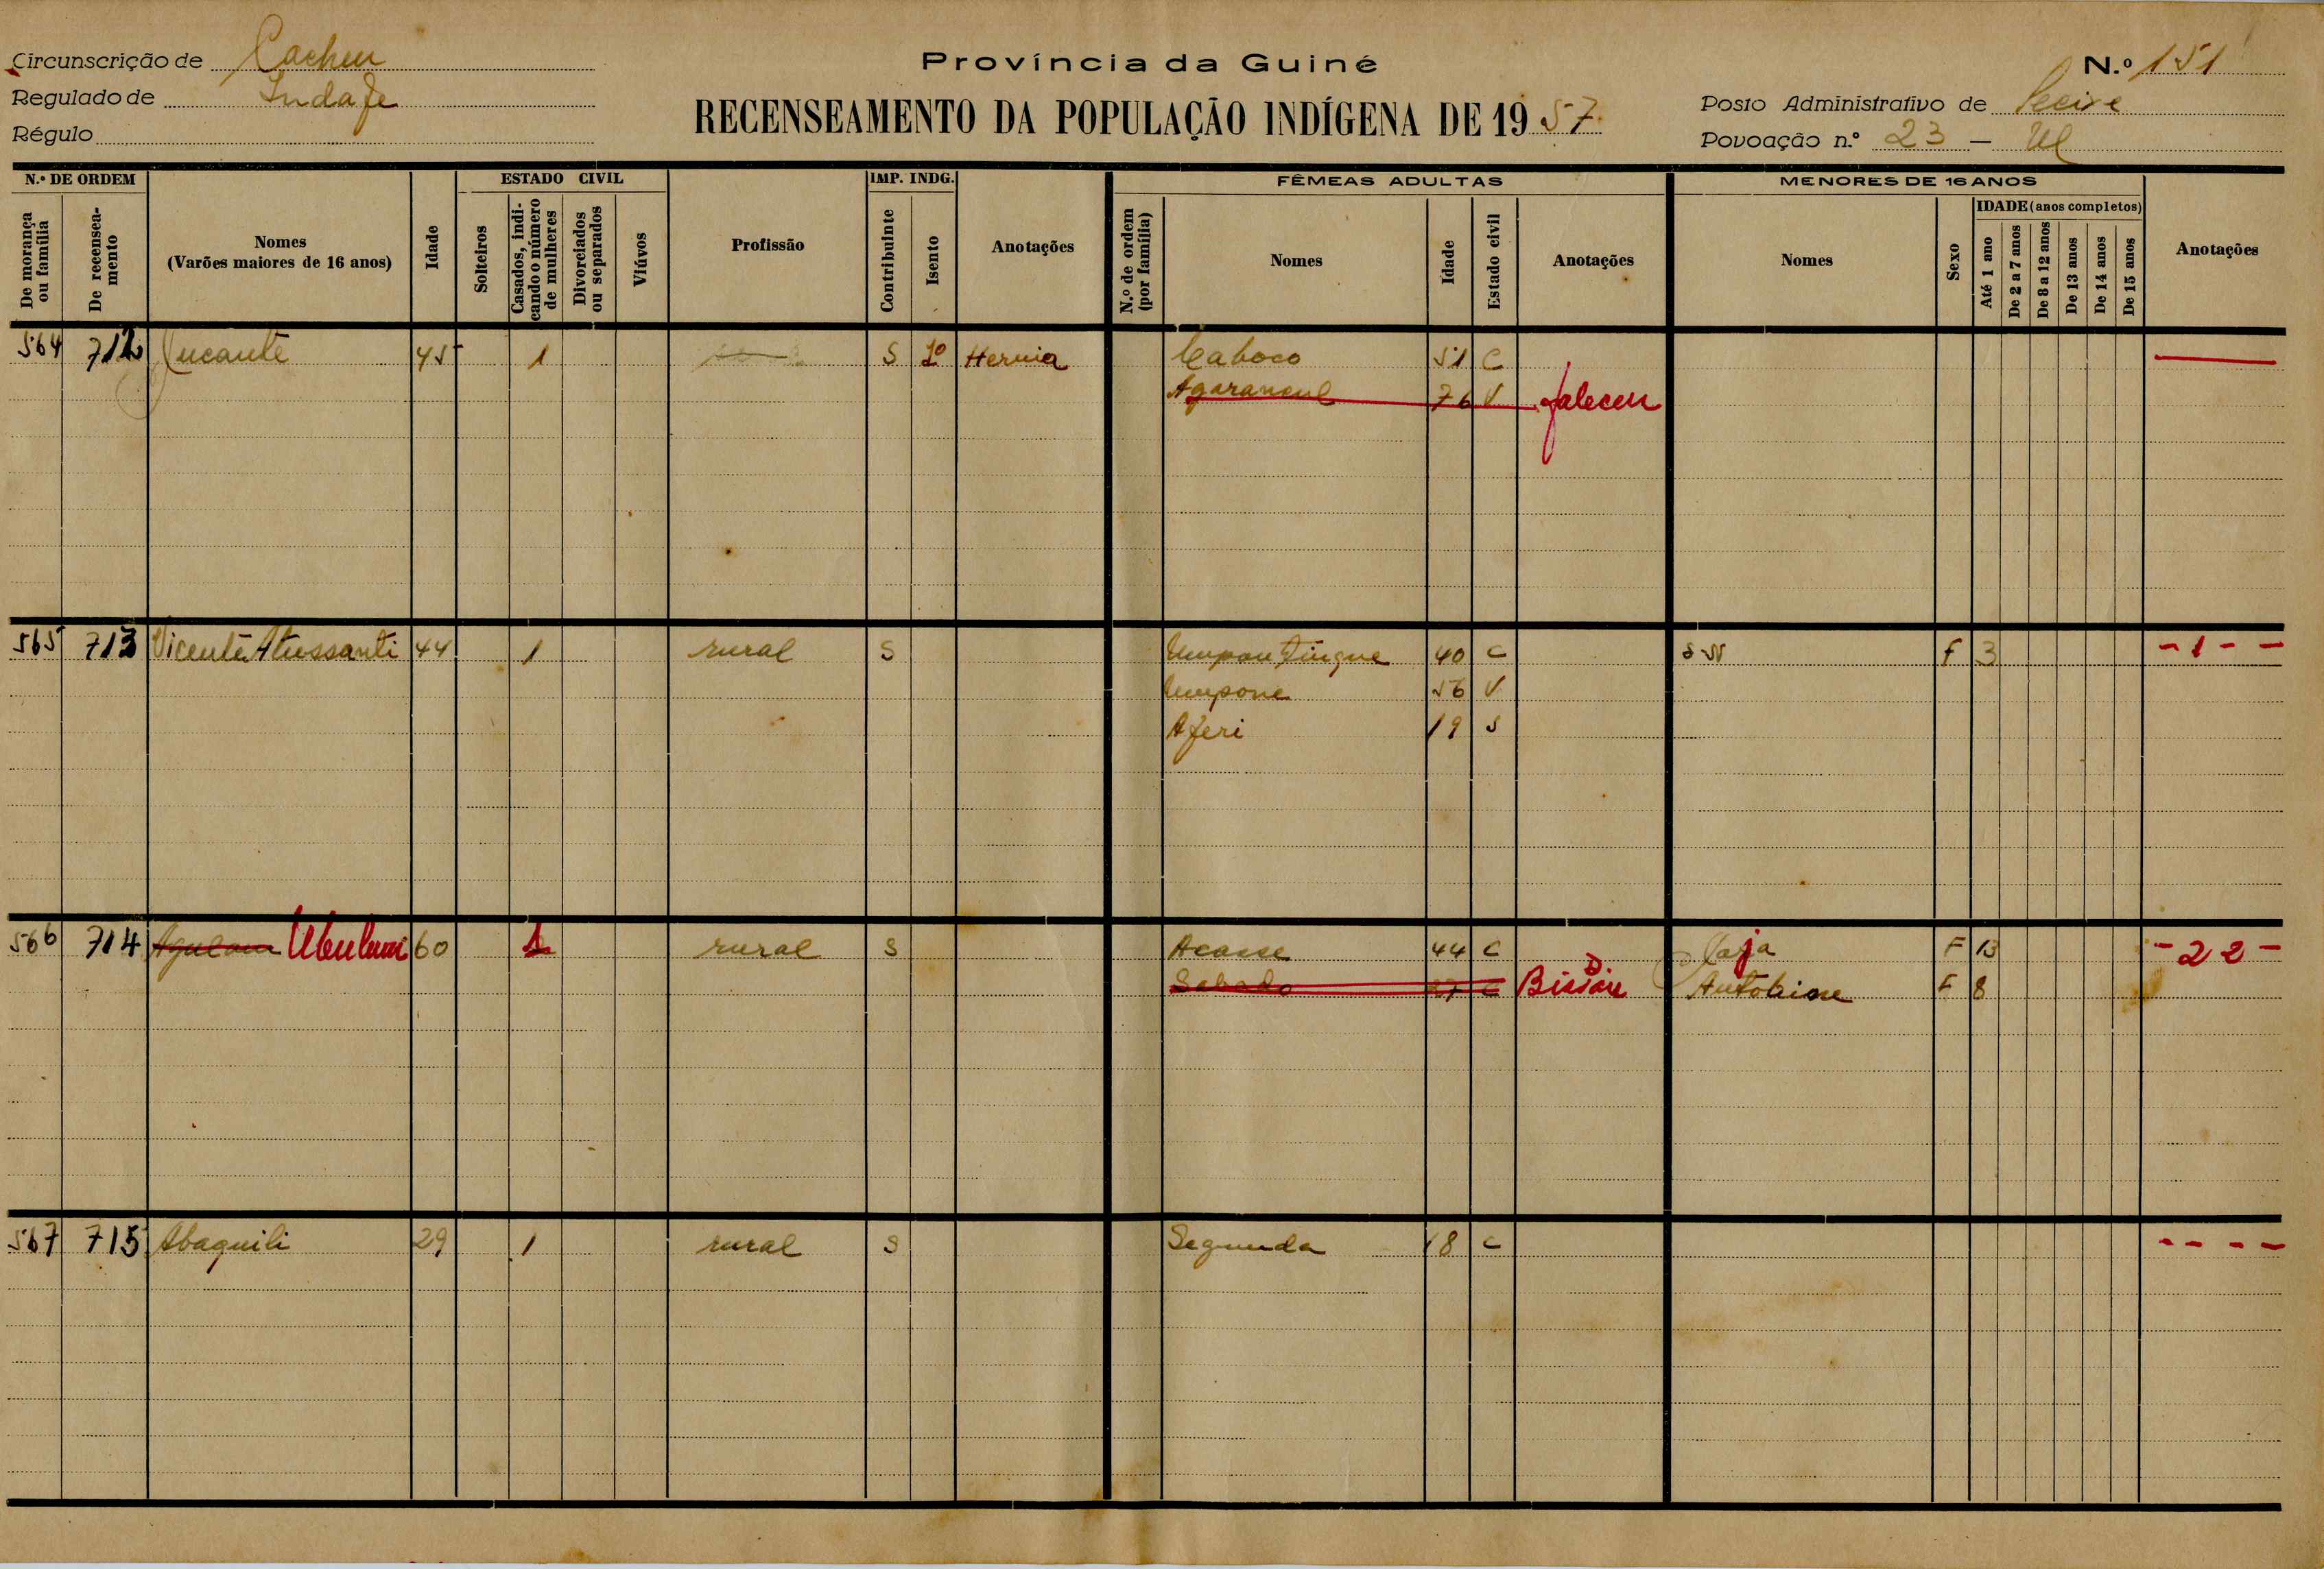 Circunscrição de Cacheu
Província da Guiné
N.º 151
Regulado de Indafe
RECENSEAMENTO DA POPULAÇÃO INDÍGENA DE 19 57
Posto Administrativo de
Régulo
Povoação n.º 23 –
N.º DE ORDEM
De morança ou família
De recenseamento
Nomes
(Varões maiores de 16 anos)
Idade
ESTADO CIVIL
Solteiros
Casados, indicando o número de mulheres
Divorciados ou separados
Viúvos
Profissão
IMP. INDG.
Contribuinte
Isento
Anotações
FÊMEAS ADULTAS
N.º de ordem (por família)
Nomes
Idade
Estado civil
Anotações
MENORES DE 16 ANOS
Nomes
Sexo
IDADE (anos completos)
Até 1 ano
De 2 a 7 anos
De 8 a 12 anos
De 13 anos
De 14 anos
De 15 anos
Anotações
564 712 45 1 S Hernia Caboco 51 C
Agarancul 76 V faleceu
565 713 Vicente Atussanti 44 1 rural S 40 C S N F 3 - 1 - -
Umpone 56 V
Aferi 19 S
566 714 60 1 rural S Acasse 44 C F 13 - 2 2 -
Sabado C F 8
567 715 Abaquili 29 1 rural S Segunda 18 C - - - -